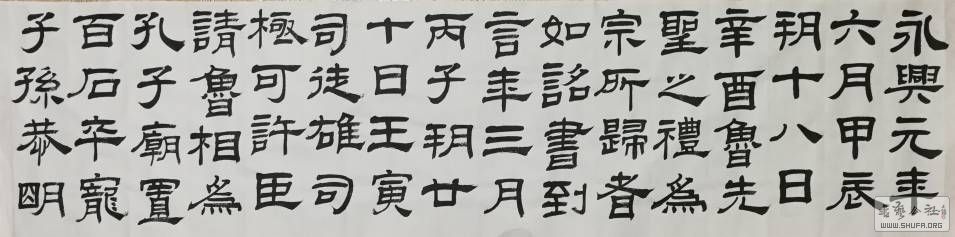 永興元年
六月甲辰
朔十八日
辛酉魯先
聖之禮為
宗所歸者
如詔書到
言年三月
丙子朔廿
十日壬寅
司徒雄司
極可許臣
請魯相為
孔子廟置
百石卒寵
子孫恭明
书艺公社
WWW.SHUFA.ORG